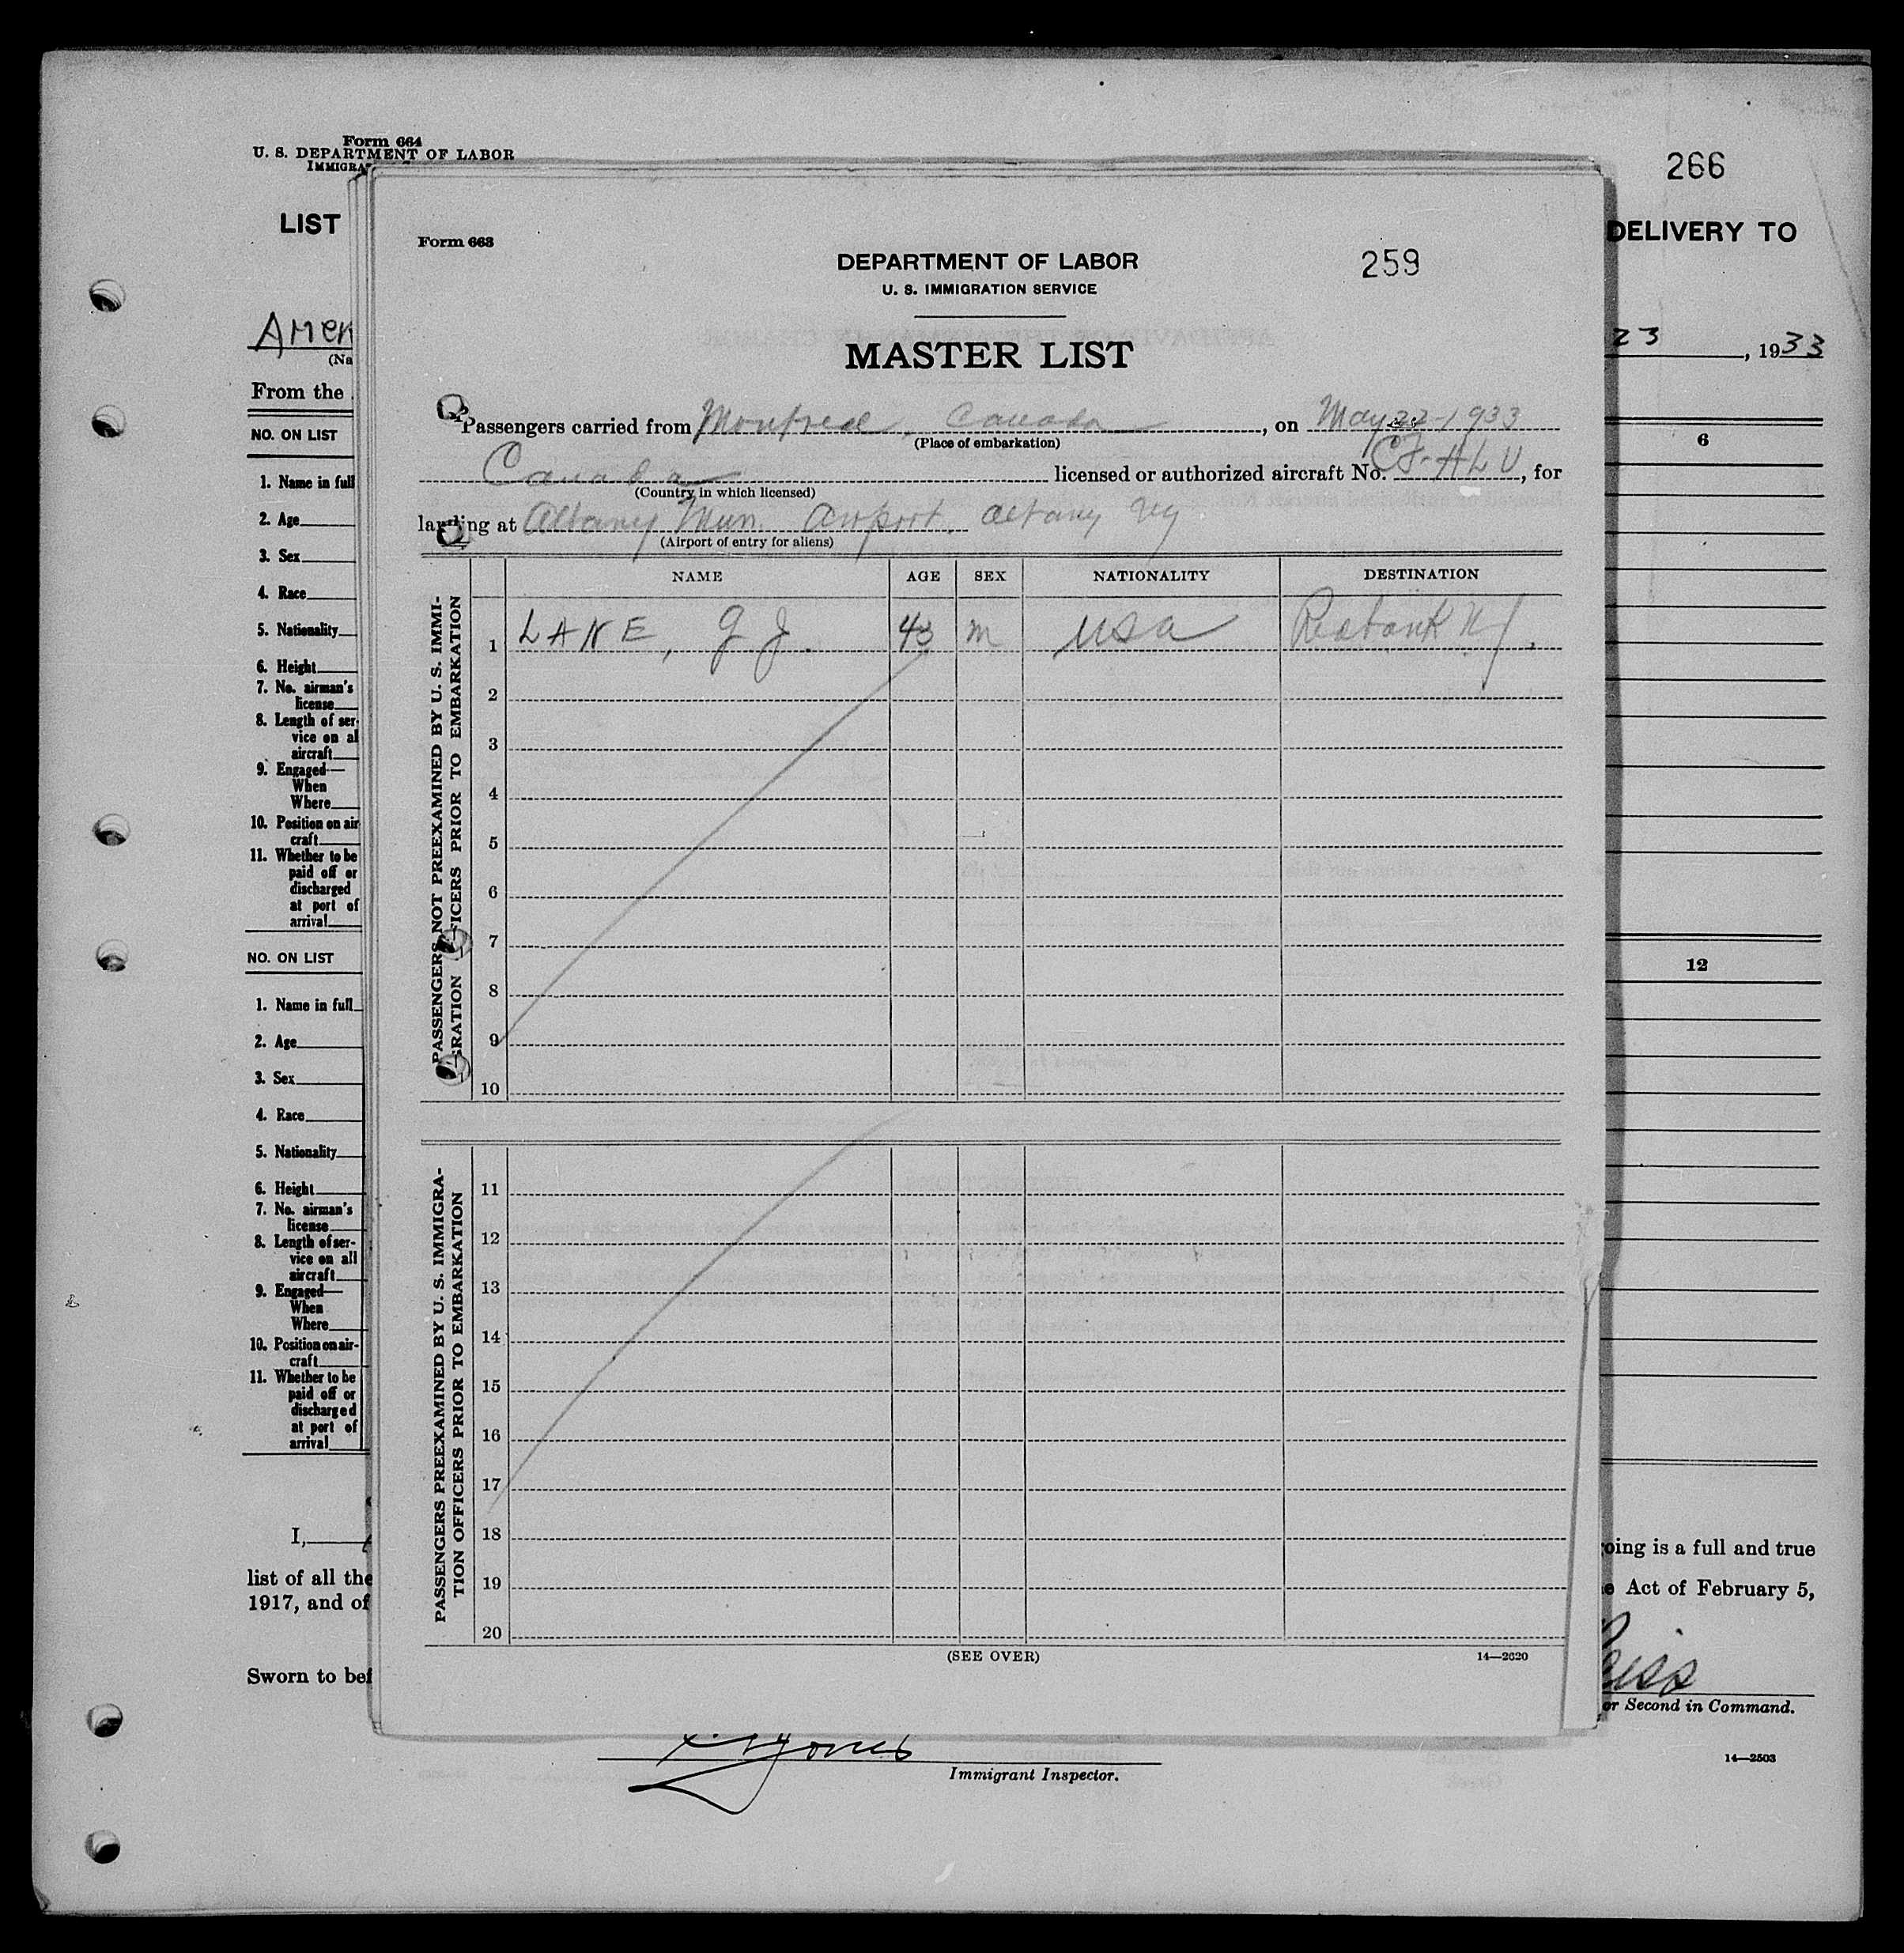 Form 664
U. S. DEPARTMENT OF LABOR
IMMIGRA
266
LIST
DELIVERY TO
Amer
23, 1933
(Na
From the
NO. ON LIST
6
1. Name in full
2. Age
3. Sex
4. Race
5. Nationality
6. Height
7. No. airman's
license
8. Length of ser-
vice on al
aircraft
9. Engaged—
When
Where
10. Position on air
craft
11. Whether to be
paid off or
discharged
at port of
arrival
NO. ON LIST
12
1. Name in full
2. Age
3. Sex
4. Race
5. Nationality
6. Height
7. No. airman's
license
8. Length of ser-
vice on all
aircraft
9. Engaged—
When
Where
10. Position on air-
craft
11. Whether to be
paid off or
discharged
at port of
arrival
I,
oing is a full and true
list of all the
e Act of February 5,
1917, and of
Sworn to bef
or Second in Command.
Jones
Immigrant Inspector.
14—2503
Form 663
DEPARTMENT OF LABOR
259
U. S. IMMIGRATION SERVICE
MASTER LIST
Passengers carried from Montreal, Canada, on May 22-1933
(Place of embarkation)
Canada licensed or authorized aircraft No. CF-ALU, for
(Country in which licensed)
landing at Albany Mun. Airport. Albany NY
(Airport of entry for aliens)
NAME AGE SEX NATIONALITY DESTINATION
PASSENGERS NOT PREEXAMINED BY U. S. IMMI-
GRATION OFFICERS PRIOR TO EMBARKATION
1 LANE, G J. 43 m USA Redbank NJ.
2
3
4
5
6
7
8
9
10
PASSENGERS PREEXAMINED BY U. S. IMMIGRA-
TION OFFICERS PRIOR TO EMBARKATION
11
12
13
14
15
16
17
18
19
20
(SEE OVER)
14—2620